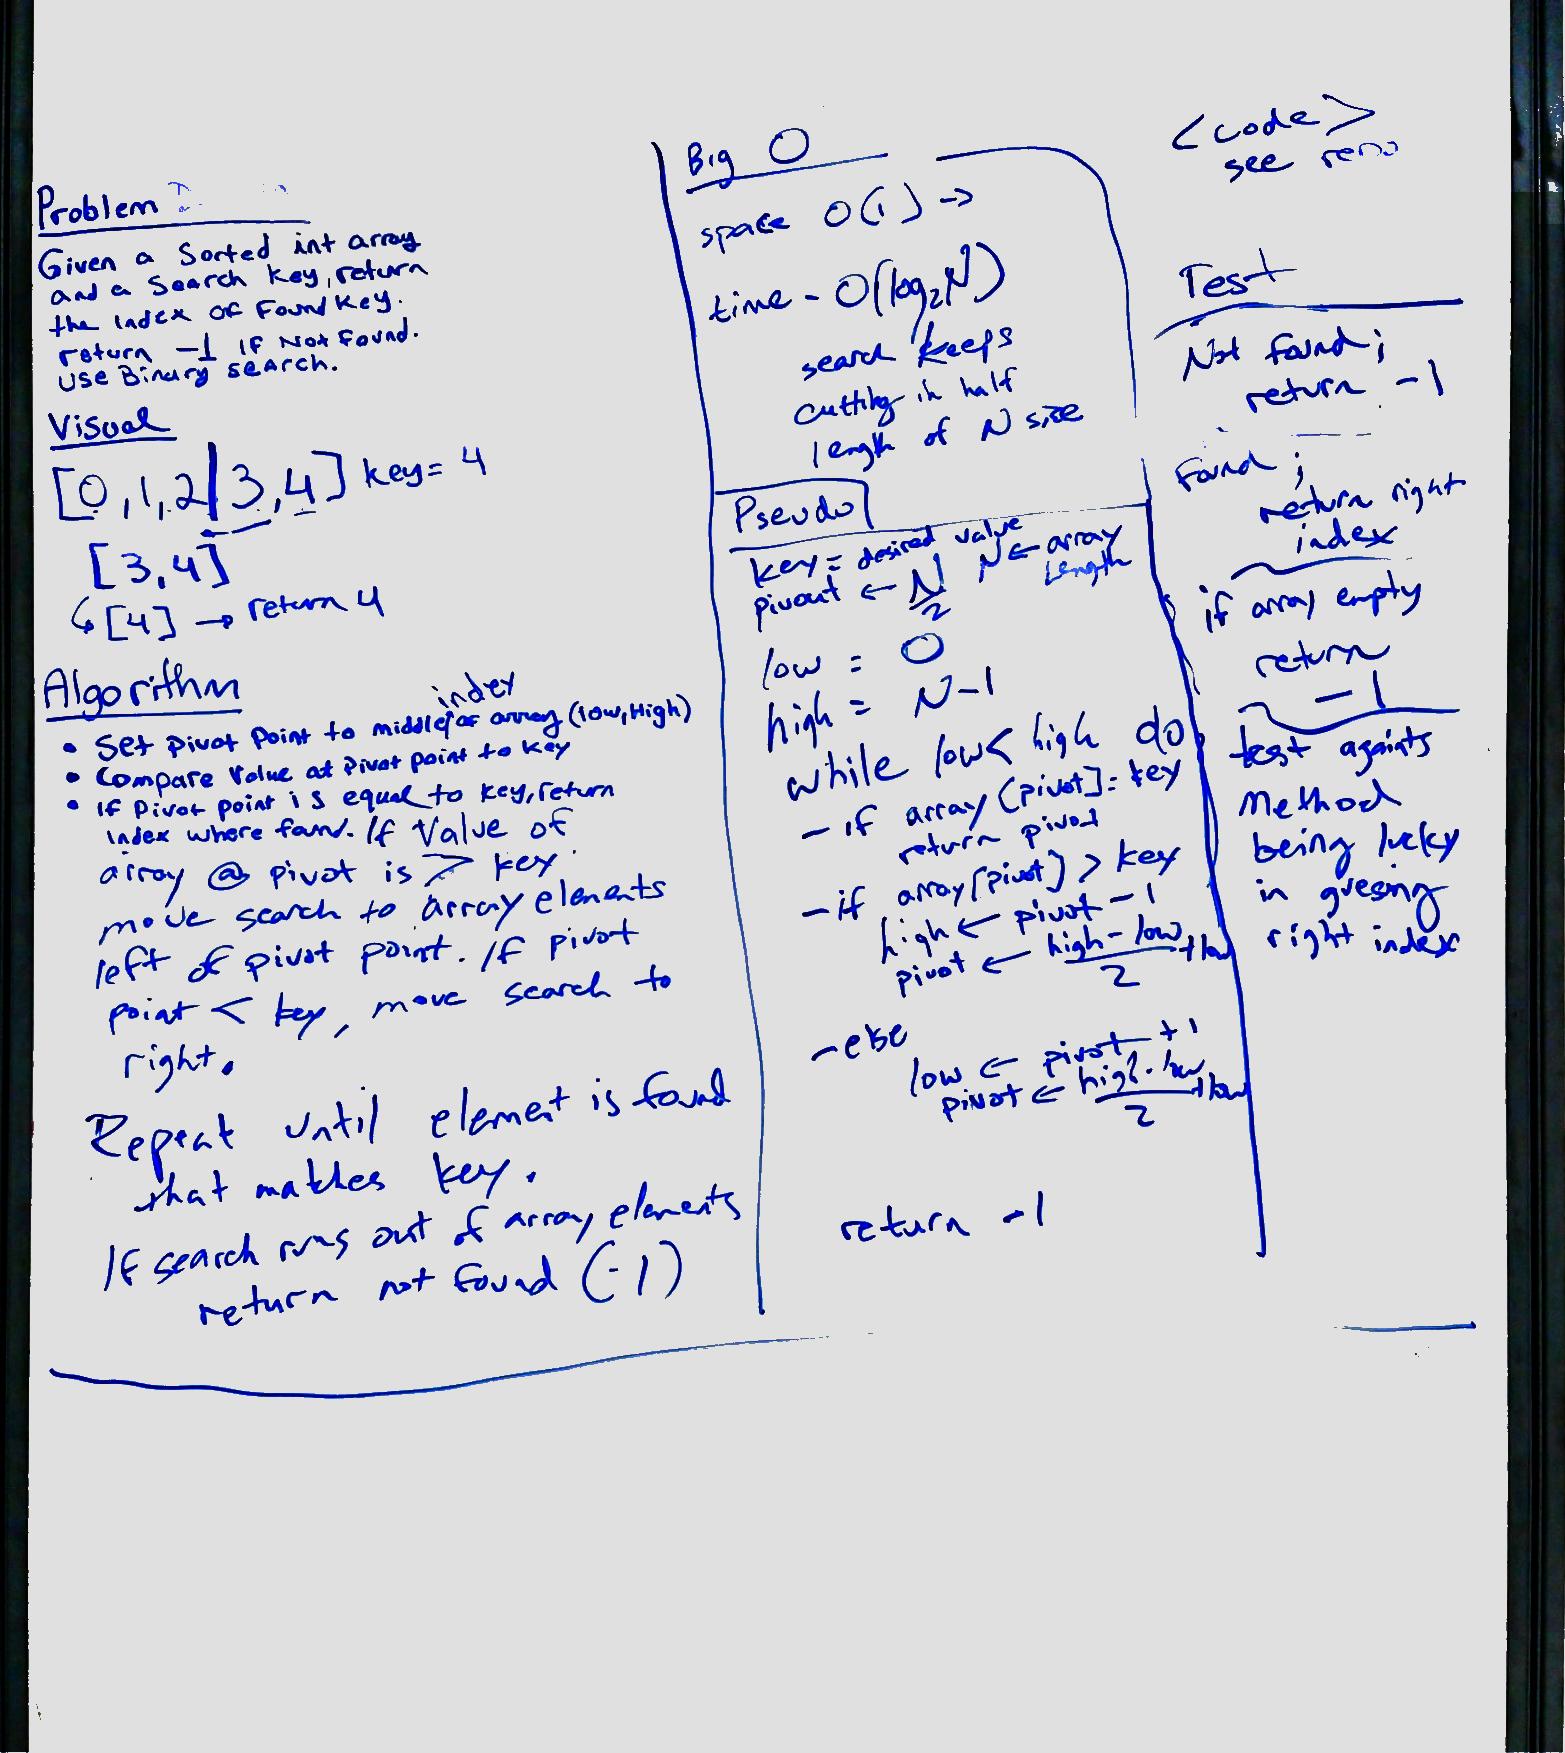 Problem
Given a Sorted int array
and a Search key, return
the Index of Found Key.
return -1 if Not Found.
Use Binary search.
Visual
[0,1,2|3,4] key = 4
[3,4]
↳ [4] → return 4
Algorithm
index
• Set pivot point to middle of array (low, High)
• Compare Value at Pivot point to key
• If Pivot point is equal to key, return
index where found. If Value of
array @ pivot is > key
move search to array elements
left of pivot point. If pivot
point < key, move search to
right.
Repeat until element is found
that matches key.
If search runs out of array elements
return not found (-1)
Big O
space O(1) →
time - O(log₂N)
search keeps
cutting in half
length of N size
Pseudo
key = desired value
N ← array
Length
pivout ← N/2
low = 0
high = N-1
while low < high do
- if array [pivot] = key
return pivot
- if array [pivot] > key
high ← pivot - 1
pivot ← high - low / 2 + low
- else
low ← pivot + 1
pivot ← high - low / 2 + low
return -1
<code>
see
Test
Not found;
return -1
Found;
return right
index
if array empty
return
-1
test againts
Method
being lucky
in guesing
right index